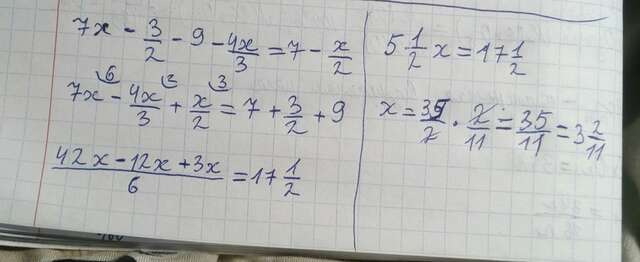 7x - 3/2 - 9 - 4x/3 = 7 - x/2
6 2 3
7x - 4x/3 + x/2 = 7 + 3/2 + 9
(42x - 12x + 3x)/6 = 17 1/2
5 1/2 x = 17 1/2
x = 35/2 · 2/11 = 35/11 = 3 2/11